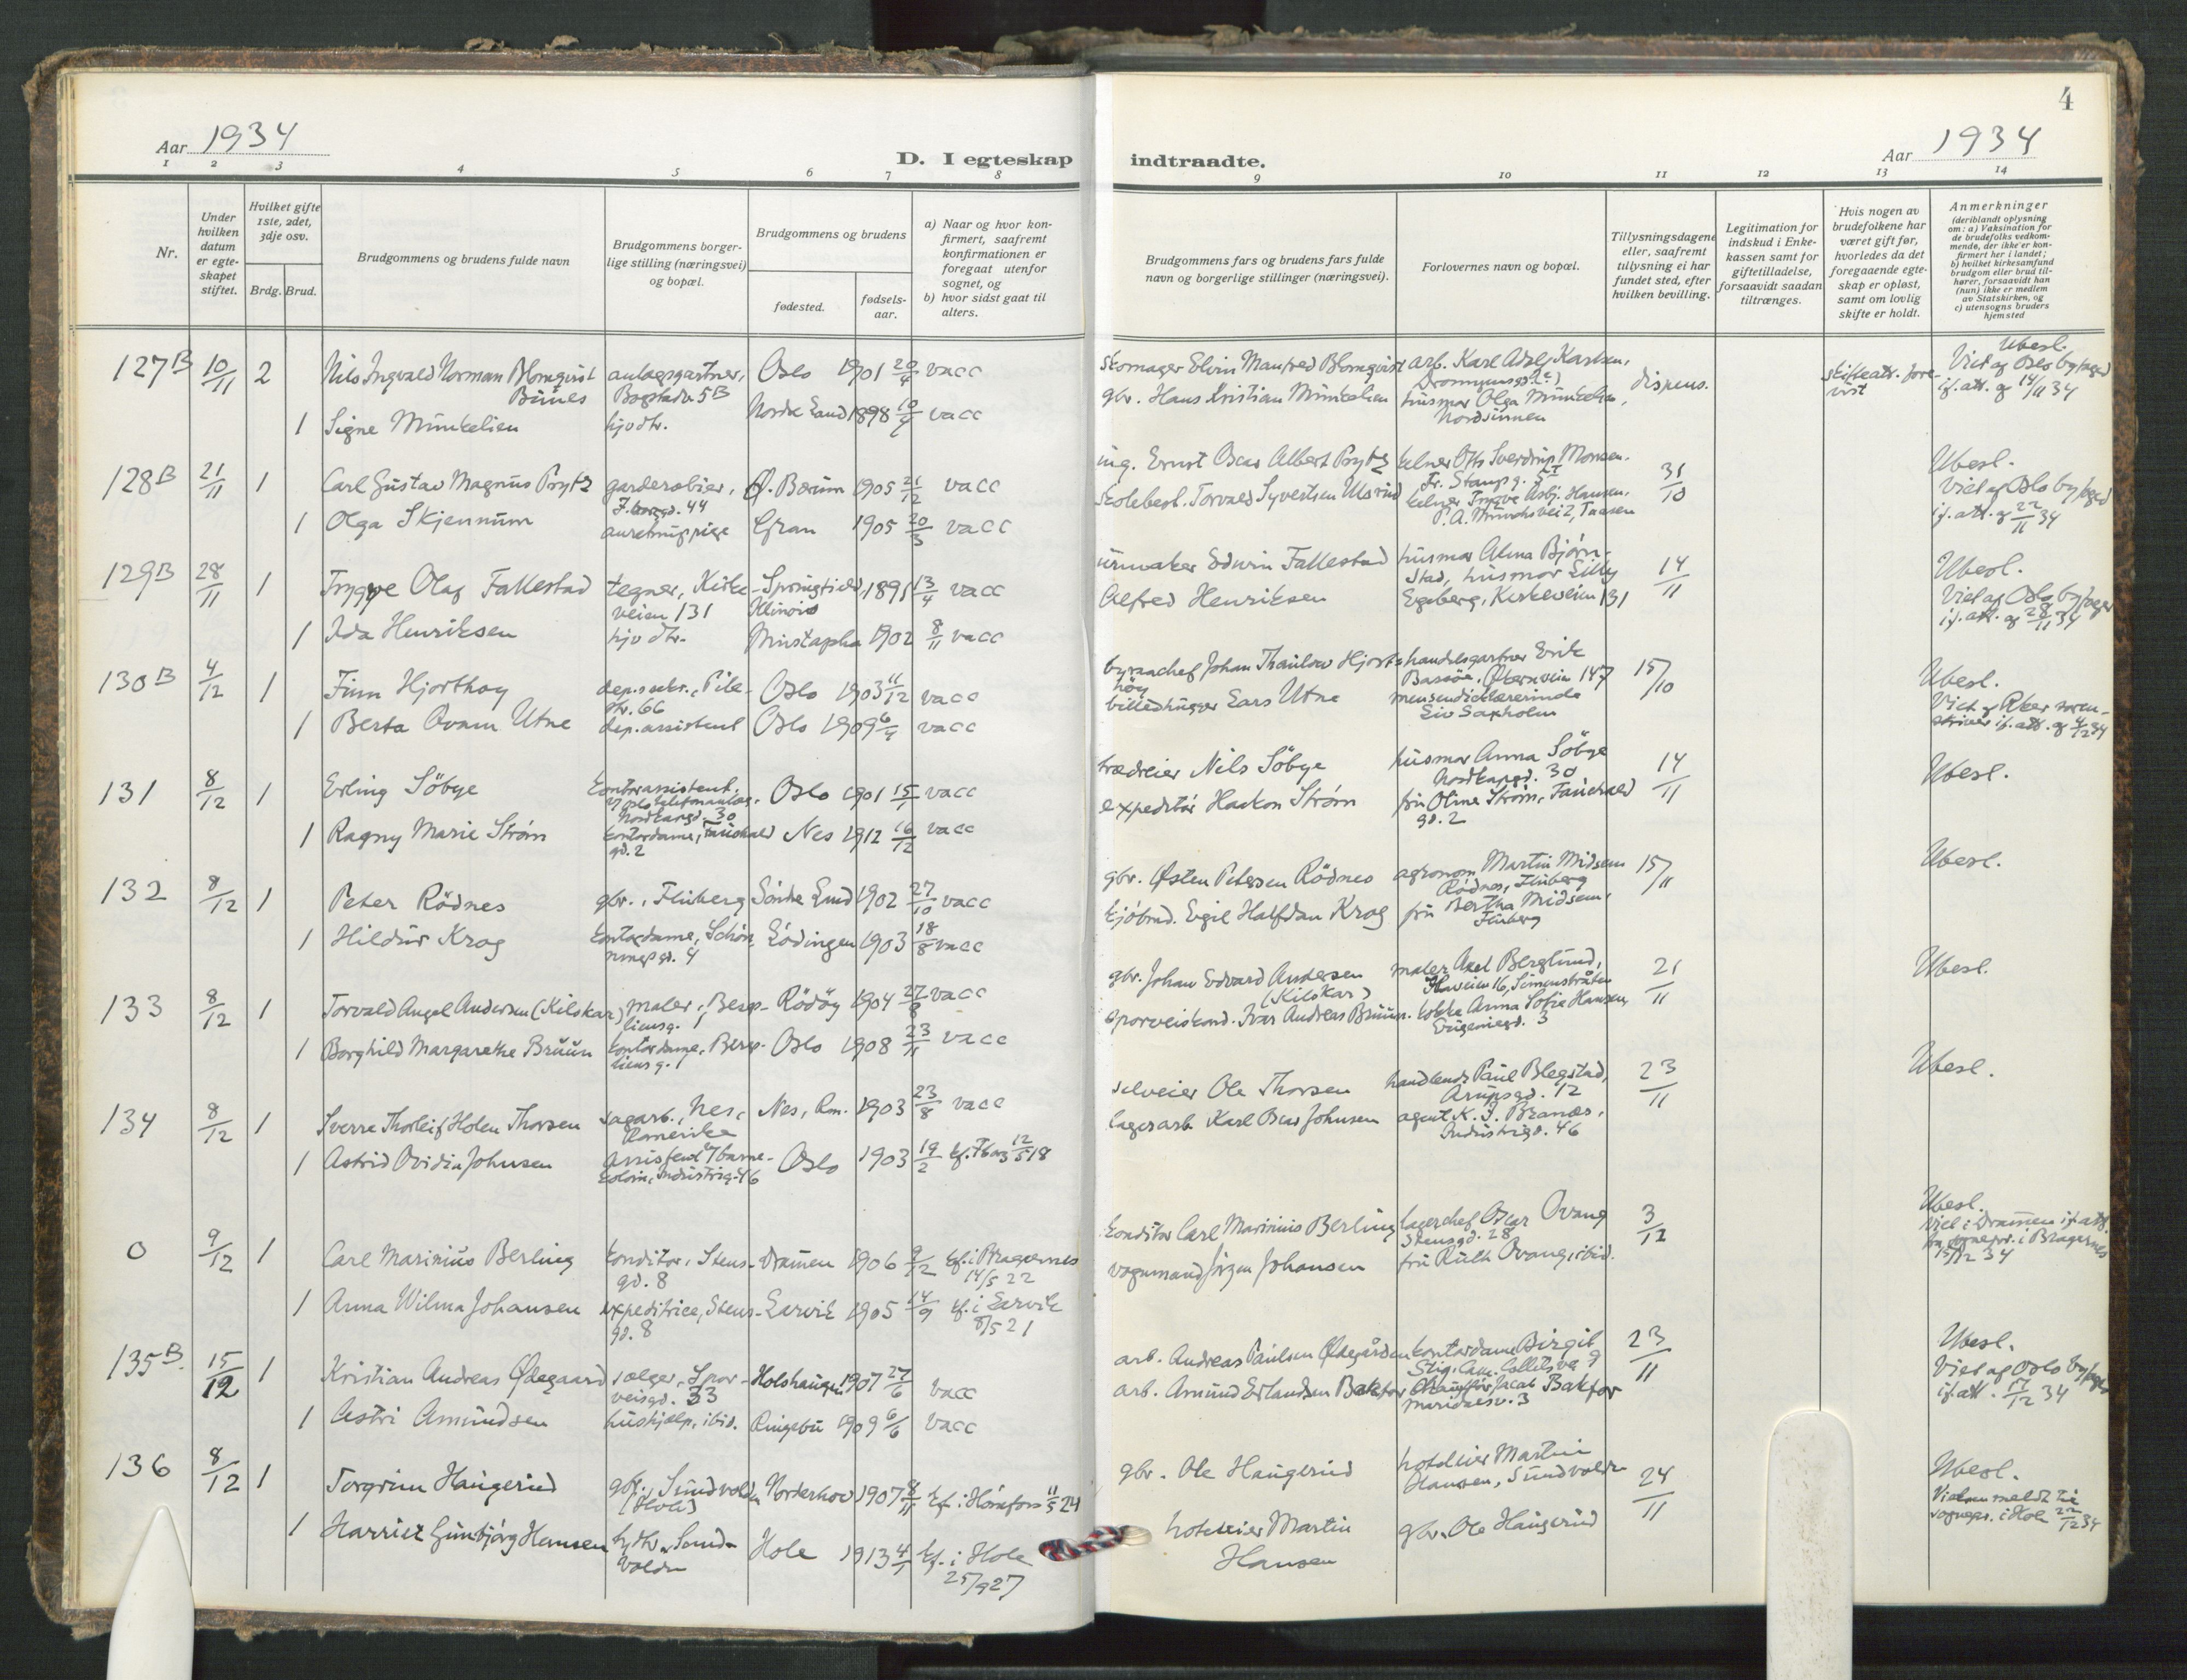 Aar 1934
D. I egteskap indtraadte.
Aar 1934
4
1 2 3 4 5 6 7 8 9 10 11 12 13 14
Nr.
Under hvilken datum er egteskapet stiftet.
Hvilket gifte 1ste, 2det, 3dje osv.
Brdg. Brud.
Brudgommens og brudens fulde navn
Brudgommens borgerlige stilling (næringsvei) og bopæl.
Brudgommens og brudens
fødested.
fødselsaar.
a) Naar og hvor konfirmert, saafremt konfirmationen er foregaat utenfor sognet, og
b) hvor sidst gaat til alters.
Brudgommens fars og brudens fars fulde navn og borgerlige stillinger (næringsvei).
Forlovernes navn og bopæl.
Tillysningsdagene eller, saafremt tillysning ei har fundet sted, efter hvilken bevilling.
Legitimation for indskud i Enkekassen samt for giftetilladelse, forsaavidt saadan tiltrænges.
Hvis nogen av brudefolkene har været gift før, hvorledes da det foregaaende egteskap er opløst, samt om lovlig skifte er holdt.
Anmerkninger (deriblandt oplysning om: a) Vaksination for de brudefolks vedkommende, der ikke er konfirmert her i landet; b) hvilket kirkesamfund brudgom eller brud tilhører, forsaavidt han (hun) ikke er medlem av Statskirken, og c) utensogns bruders hjemsted
127B 10/11 2 Nils Ingvald Norman Blomqvist anlagsgartner, Oslo 1901 20/4 vacc skomager Elvin Manfred Blomqvist arb. Karl Adolf Karlsen, dispens. skifteatt. forevist Ubesl.
Bünes Bogstadv. 5B Viet af Oslo byfoged
1 Signe Münkelien hjv dtr. Nordre Land 1898 10/7 vacc gbr. Hans Kristian Münkelien hüsmor Olga Münkelien, if. att. af 14/11 34
Nordsinnen
128B 21/11 1 Carl Güstav Magnüs Prytz garderobier, Ø. Bærüm 1905 21/12 vacc ing. Ernst Oscar Albert Prytz kelner Otto Sverdrup Monsen. 31/10 Ubesl.
gd. 44 Viet af Oslo byfoged
1 Olga Skjennüm Gran 1905 20/3 vacc kelner Trygve Asbj. Hansen, if. att. af 22/11 34
P. A. Münchs vei 2, Taasen
129B 28/11 1 Trygve Olaf Fallestad tegner, Kirkeveien 131 Springfield, Illinois 1895 13/4 vacc ürmaker Edwin Fallestad hüsmor Alma Bjørnstad, hüsmor Lilly 14/11 Ubesl.
Viet af Oslo byfoged
1 Ida Henriksen hjv dtr. Müstapha 1902 8/11 vacc Alfred Henriksen Egeberg, Kirkeveien 131 if. att. af 28/11 34
130B 4/12 1 Finn Hjorthøy dep. sekr., Pilestr. 66 Oslo 1903 11/12 vacc byraachef Johan Thaulow Hjorthøy handelsgartner Erik 15/10 Ubesl.
Bassøe, Økernveien 147
1 Berta Ovam Utne dep. assistent Oslo 1909 6/4 vacc billedhügger Lars Utne mensendiecklærerinde
Liv Saxholm
Viet af Aker sorenskriver if. att. af 4/12 34
131 8/12 1 Erling Söbye kontorassistent. Oslo 1901 15/1 vacc trædreier Nils Söbye hüsmor Anna Söbye 14/11 Ubesl.
v/ Oslo telefonanlæg, Nordkapgd. 30 Nordkapgd. 30
1 Ragny Marie Strøm kontordame, Faüchald gd. 2 Nes 1912 16/12 vacc expeditör Haakon Strøm frü Oline Strøm, Faüchald gd. 2
132 8/12 1 Peter Rödnes gbr., Flüberg Söndre Land 1902 27/10 vacc gbr. Østen Petersen Rödnes agronom Martin Midsem 15/11 Ubesl.
Rödnes, Flüberg
1 Hildür Krog kontordame, Schönningsgd. 4 Lödingen 1903 18/8 vacc kjöbmd. Egil Halfdan Krog frü Bertha Midsem, Flüberg
133 8/12 1 Torvald Angel Andersen (Kilskar) maler, Bergliensg. 1 Rödöy 1904 27/8 vacc gbr. Johan Edvard Andersen (Kilskar) maler Axel Berglünd, 21/11 Ubesl.
1 Borghild Margarethe Brüün kontordame, Bergliensg. 1 Oslo 1908 23/11 vacc sporveiskond. Ivar Andreas Brüün. kokke Anna Sofie Hansen, Eügeniegd. 3
134 8/12 1 Sverre Thorleif Holen Thorsen sagarb., Nes, Romerike Nes, Rm. 1903 23/8 vacc selveier Ole Thorsen handlende Paül Blegstad, 23/11 Ubesl.
Arüpsgd. 12
1 Astrid Ovidia Johnsen assistent v/ barnekoloni, Indüstrig. 46 Oslo 1903 19/2 kf. Fborg 12/5 18 lagerarb. Karl Oscar Johnsen agent K. J. Brances, Indüstrigd. 46
0 9/12 1 Carl Mariniüs Berling konditor, Stensgd. 8 Drammen 1906 9/12 kf. i Bragernes 14/5 22 konditor Carl Mariniüs Berling lagerchef Oscar Ovang 3/12 Ubesl.
Stensgd. 28 Viet i Drammen if. att.
1 Anna Wilma Johansen expeditrice, Stensgd. 8 Larvik 1905 14/9 kf. i Larvik 8/5 21 vognmand Jörgen Johansen frü Rüth Ovang, ibid. fra sognepr. i Bragernes 15/12 34
135B 15/12 1 Kristian Andreas Ødegaard sælger, Sporveisgd. 33 Holshaugen 1907 27/6 vacc arb. Andreas Paülsen Ødegården kontordame Birgit 23/11 Ubesl.
Stig, Cam. Colletts vei 9 Viet af Oslo byfoged
1 Astri Amündsen hüshjælp, ibid. Ringebü 1909 6/6 vacc arb. Amünd Erlandsen Bakfor Jacob Bakfor if. att. 17/12 34
Maridalsv. 3
136 8/12 1 Torgrim Haügerüd gbr., Sündvolden (Hole) Norderhov 1907 8/11 kf. i Hönefoss 11/5 24 gbr. Ole Haügerüd hoteleier Martin 24/11 Ubesl.
Hansen, Sündvolden Vielsen meldt til
1 Harriet Günbjörg Hansen hj dtr., Sundvolden Hole 1913 4/1 kf. i Hole 25/9 27 hoteleier Martin Hansen gbr. Ole Haügerüd sognepr. i Hole 22/12 34